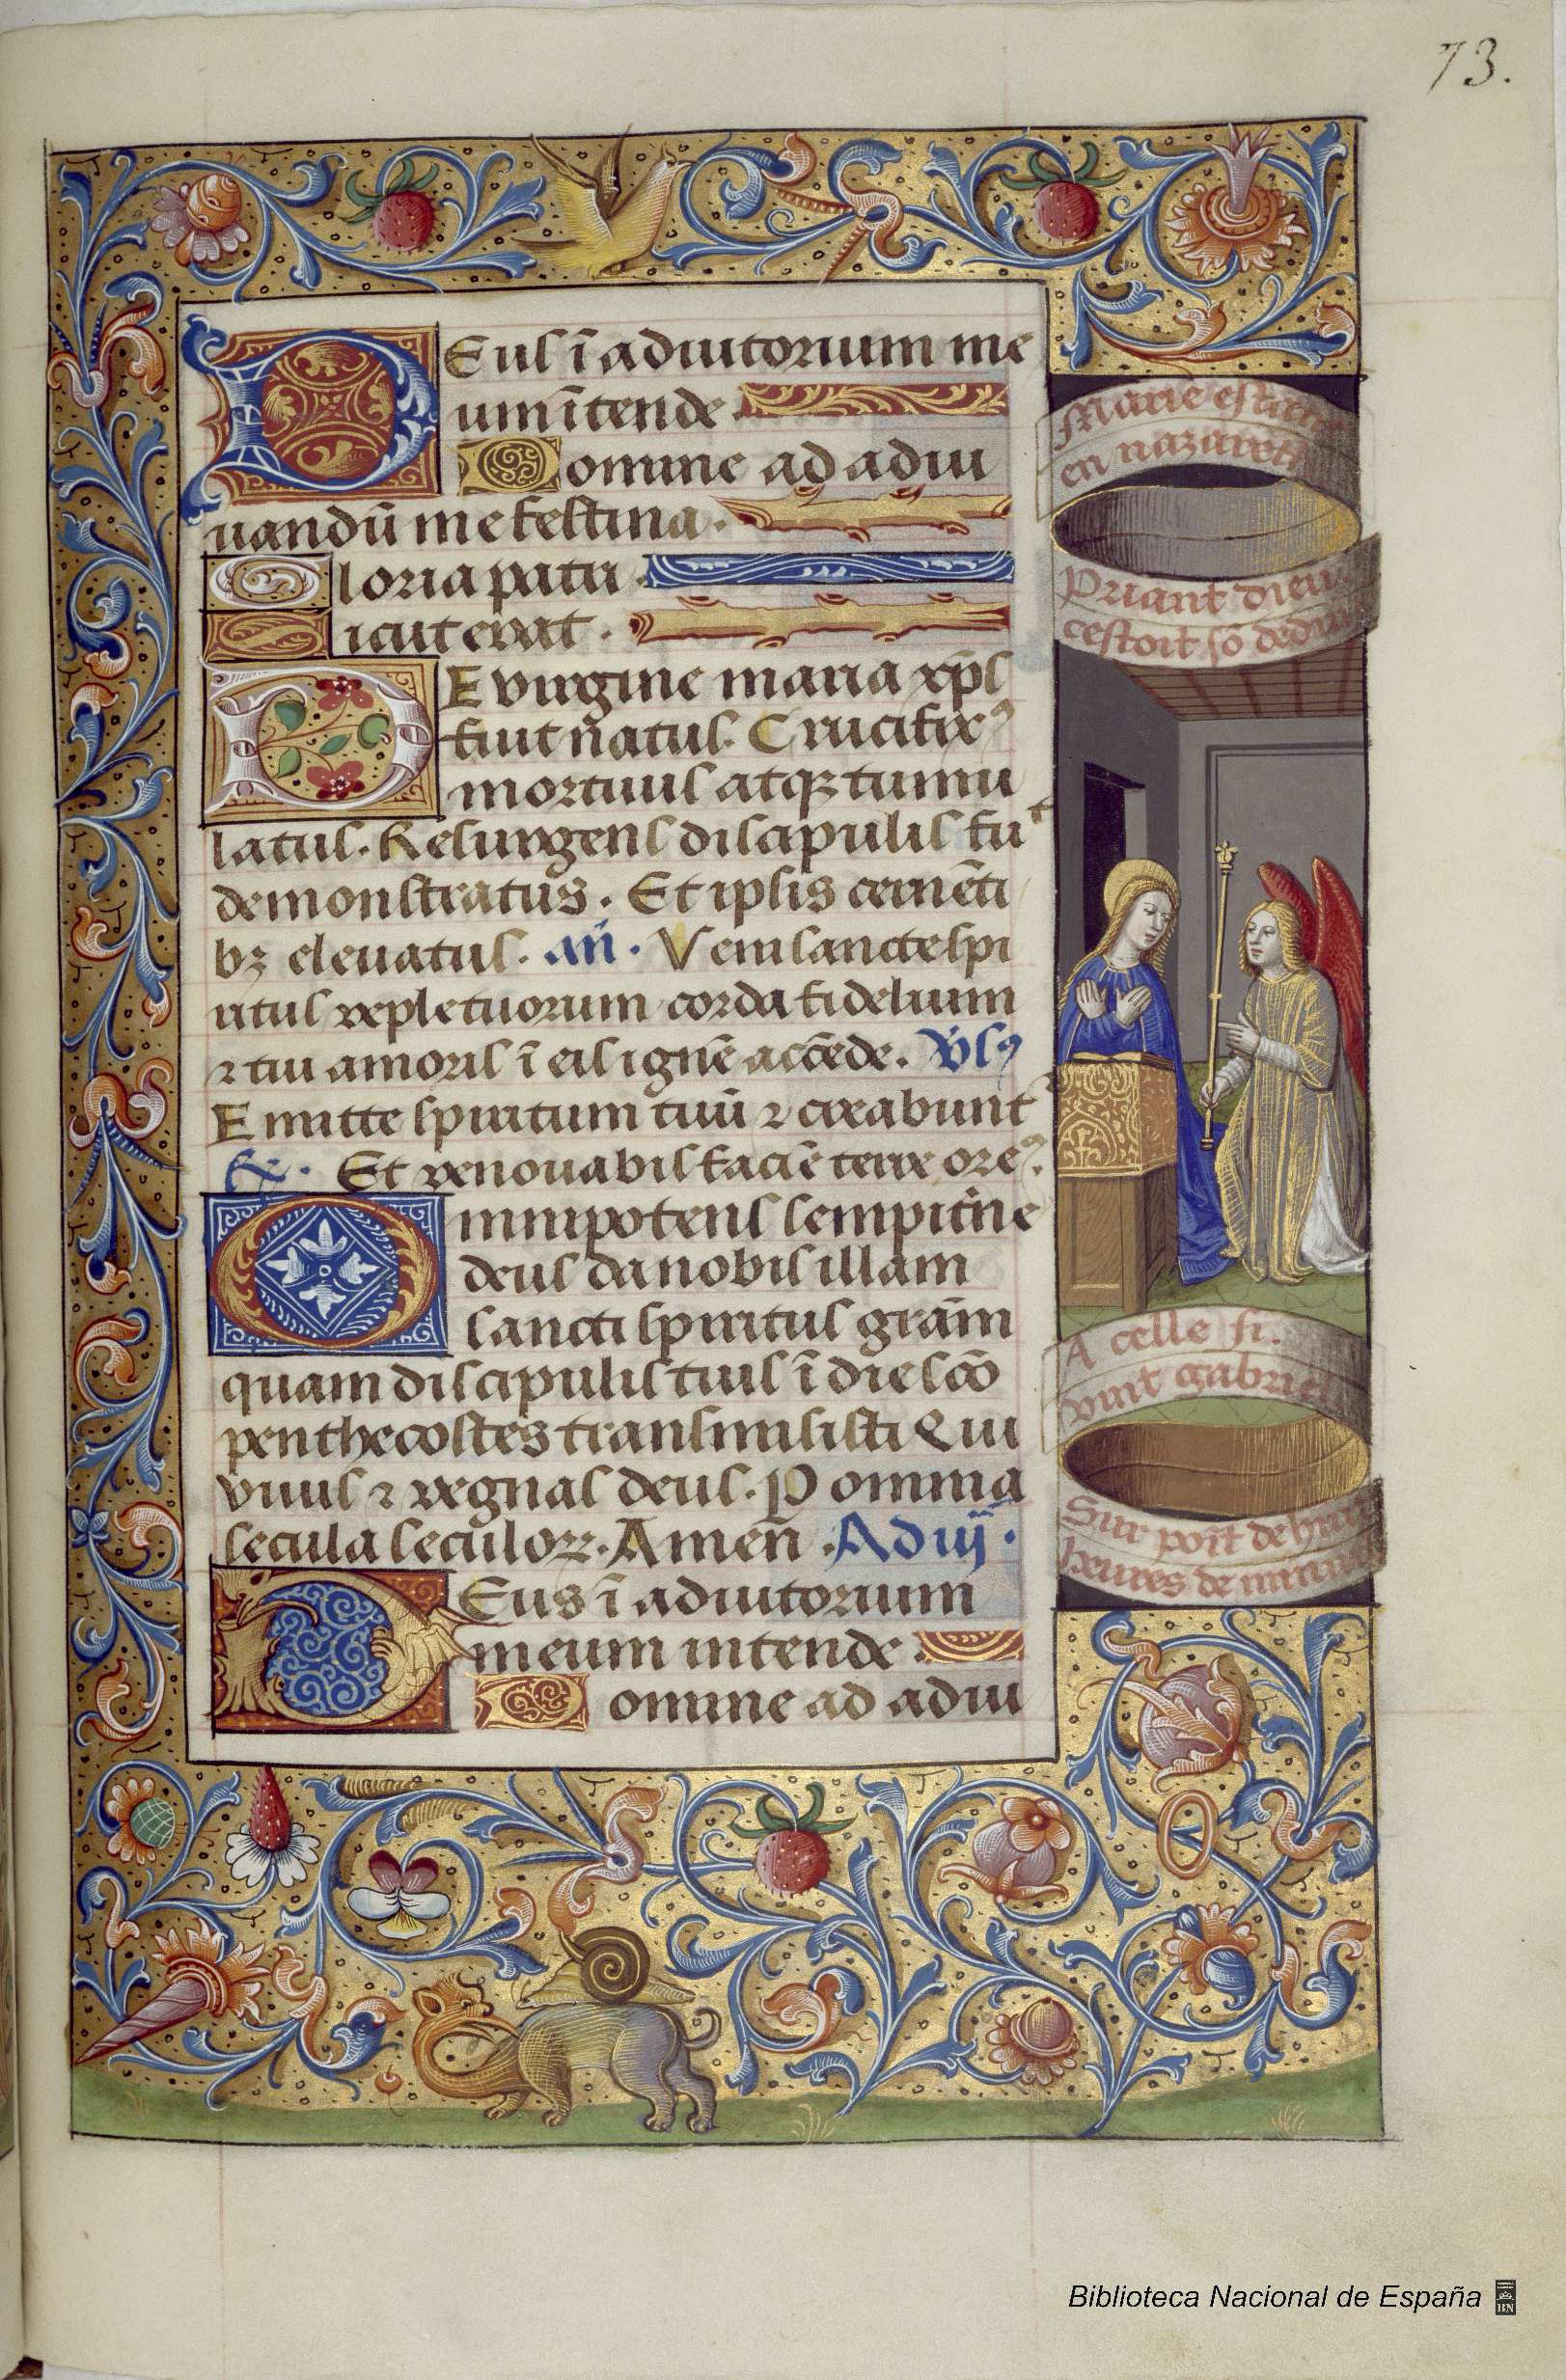 73.
Deus ī adiutorium me
um ītende
Domine ad adiu
uandū me festina.
Gloria patri.
Sicut erat.
De virgine maria xp̄s
fuit natus. Crucifixꝰ
mortuus atqꝫ tumu
latus. Resurgens discipulis fuᵗ
demonstratus. Et ipsis cernēti
bꝫ eleuatus. añ. Veni sancte spi
ritus reple tuorum corda fidelium
⁊ tui amoris ī eis ignē accēde. v̄sꝰ
Emitte spiritum tuū ⁊ creabunt
℟. Et renouabis faciē terre ore.
Omnipotens sempit̄ne
deus da nobis illam
sancti spiritus grām
quam discipulis tuis ī die scō
penthecostes transmisisti Qui
viuis ⁊ regnas deus. P omnia
secula seculoꝝ. Amen. Ad iij.
Deus ī adiutorium
meum intende.
Domine ad adiu
Marie estant
en nazareth
Priant dieu
cestoit sō
A celle fi.
vint gabriel
Sur poīt de
heures de
Biblioteca Nacional de España
BN